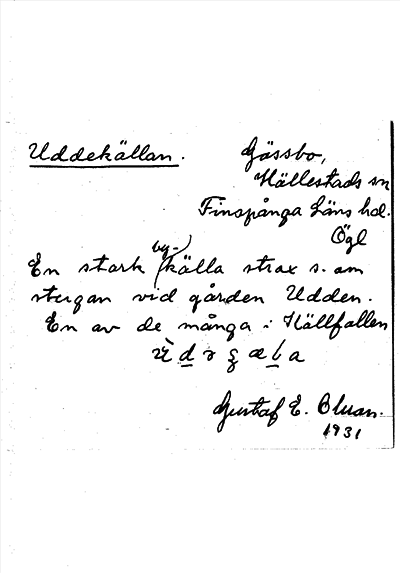 Uddekällan.
Gässbo,
Hällestads sn
Finspånga Läns hd.
Ögl
En stark by-källa strax s. om
stugan vid gården Udden.
En av de många i Hällfallen
Gustaf E.
1931